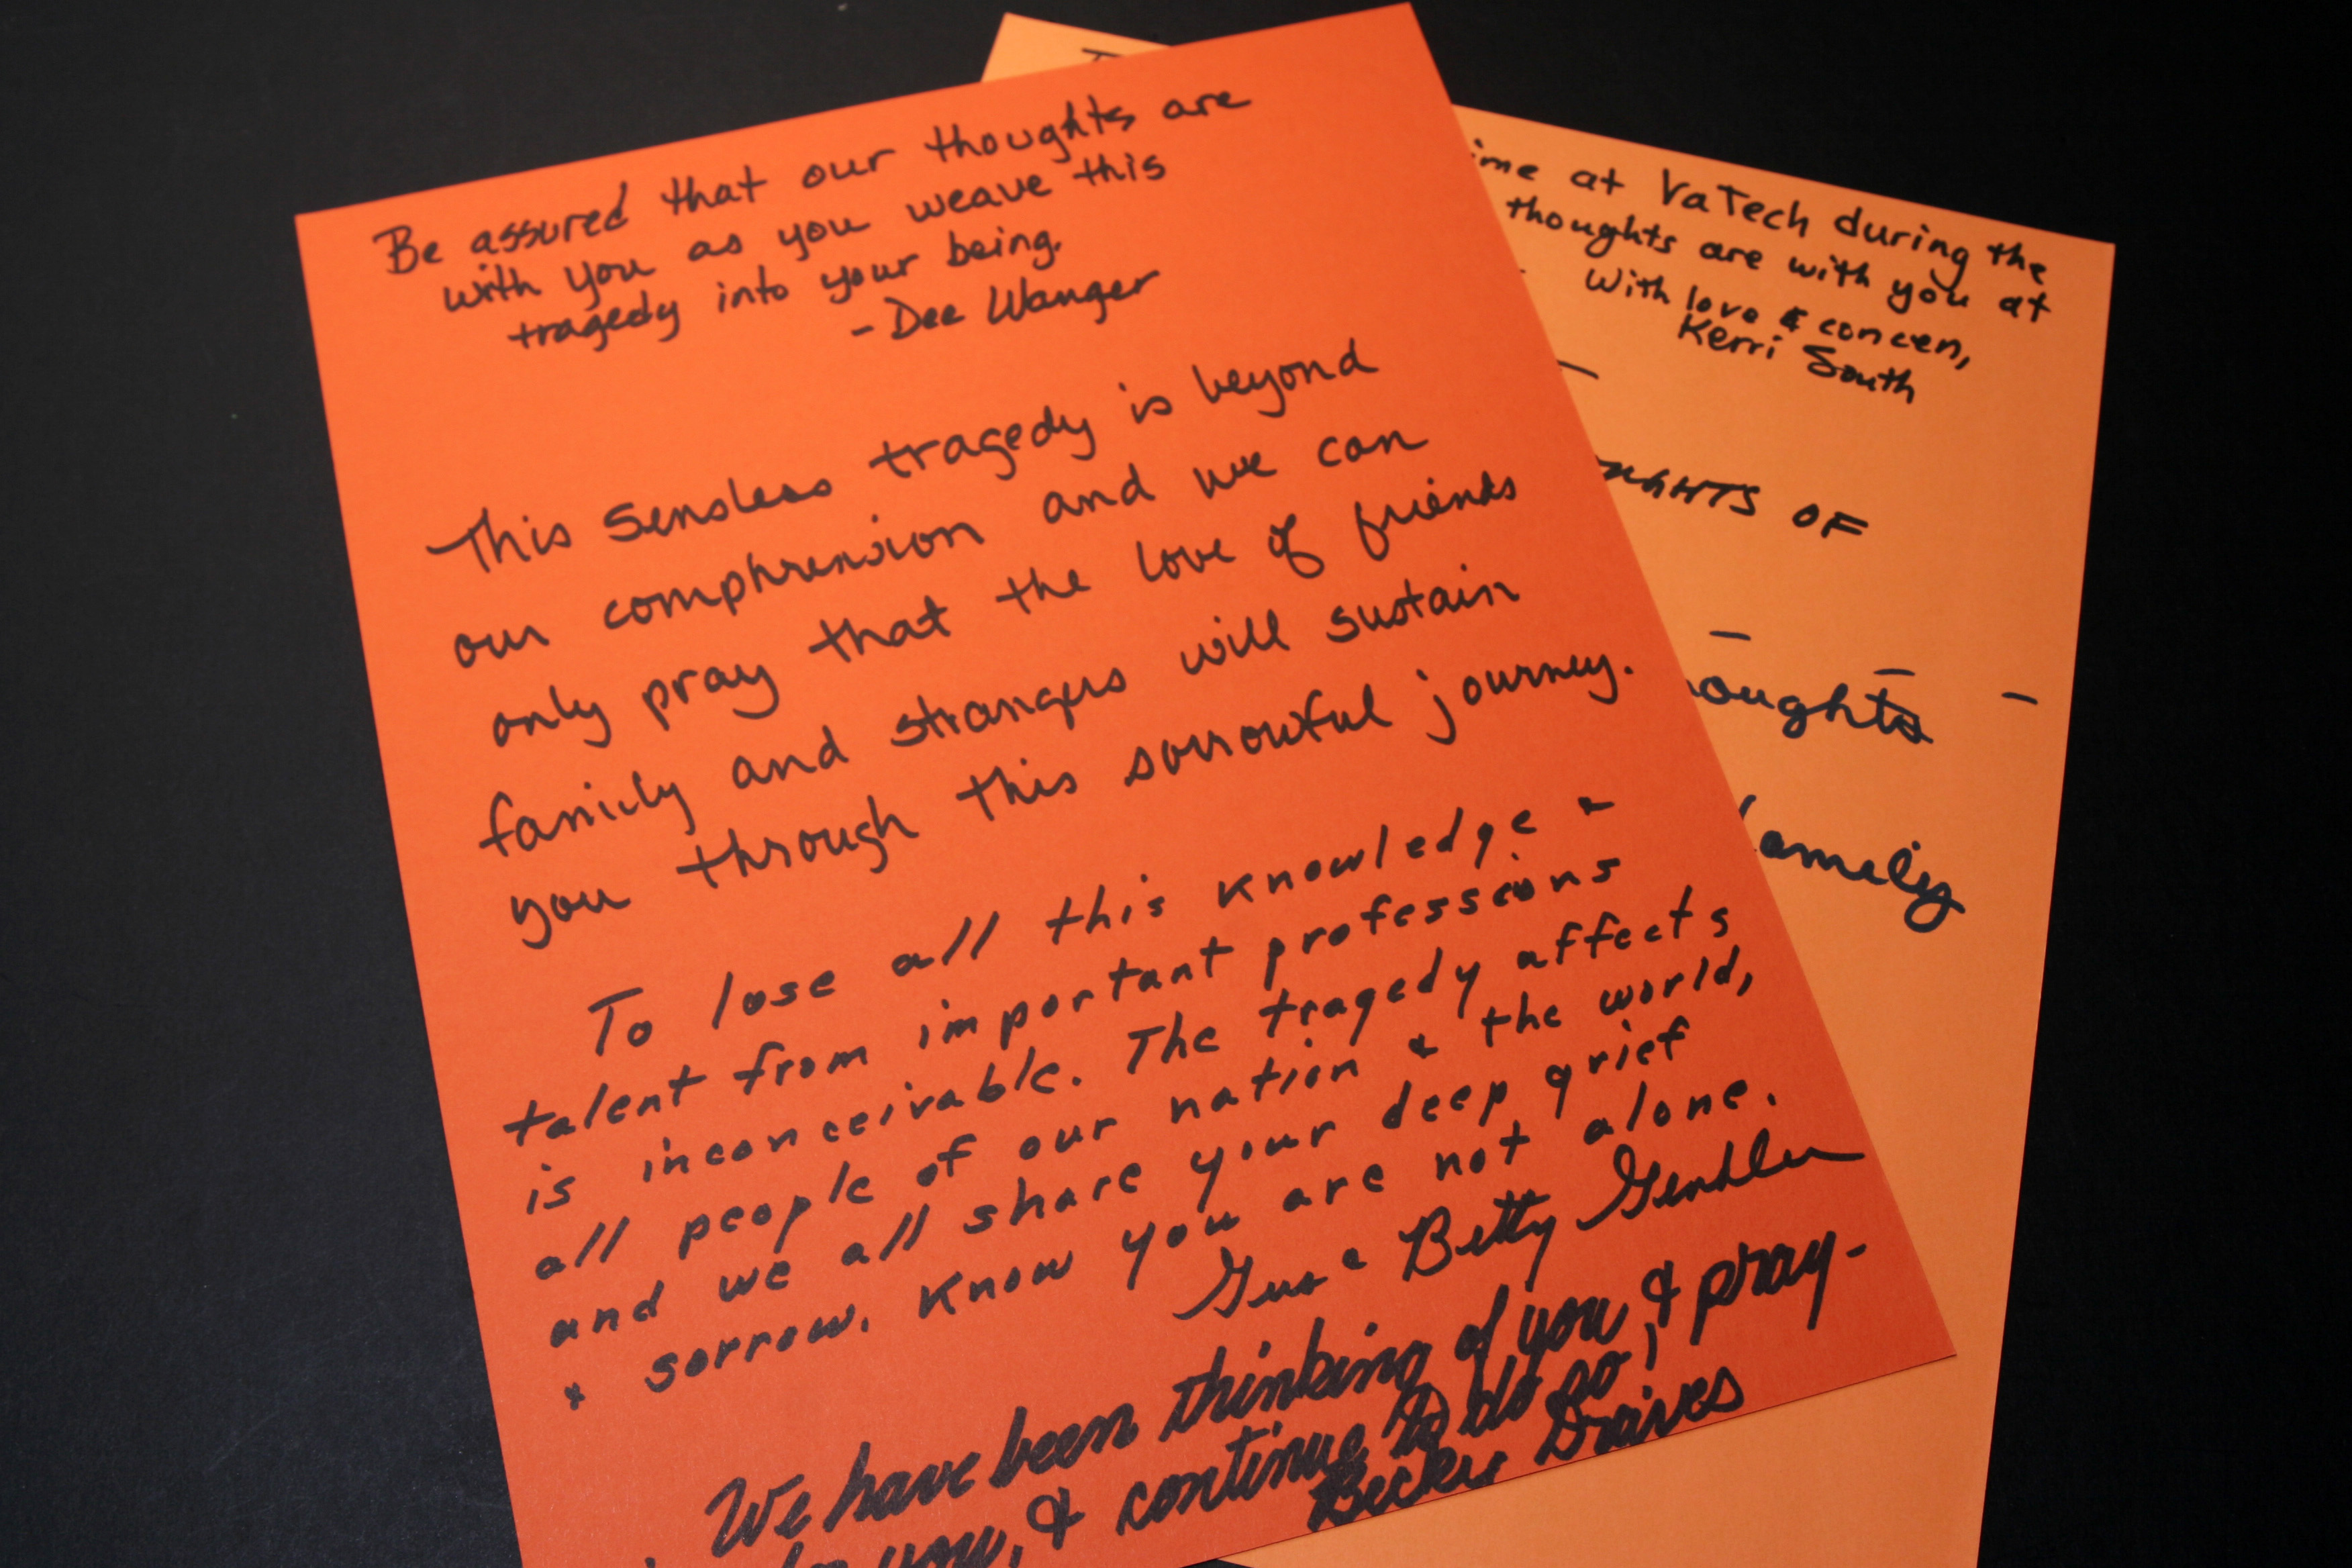 Be assured that our thoughts are
with you as you weave this
tragedy into your being.
- Dee Wanger
This Sensless tragedy is beyond
our comphrension and we can
only pray that the love of friends
family and strangers will sustain
you through this sorrowful journey.
To lose all this knowledge -
talent from important professions
is inconceivable. The tragedy affects
all people of our nation & the world,
and we all share your deep grief
& sorrow. Know you are not alone.
Gus & Betty
We have been thinking of you & pray-
you, & continue to do so!
Becky Draives
ime at VaTech during the
thoughts are with you at
With love & concen,
Kerri South
GHTS OF
oughts
family